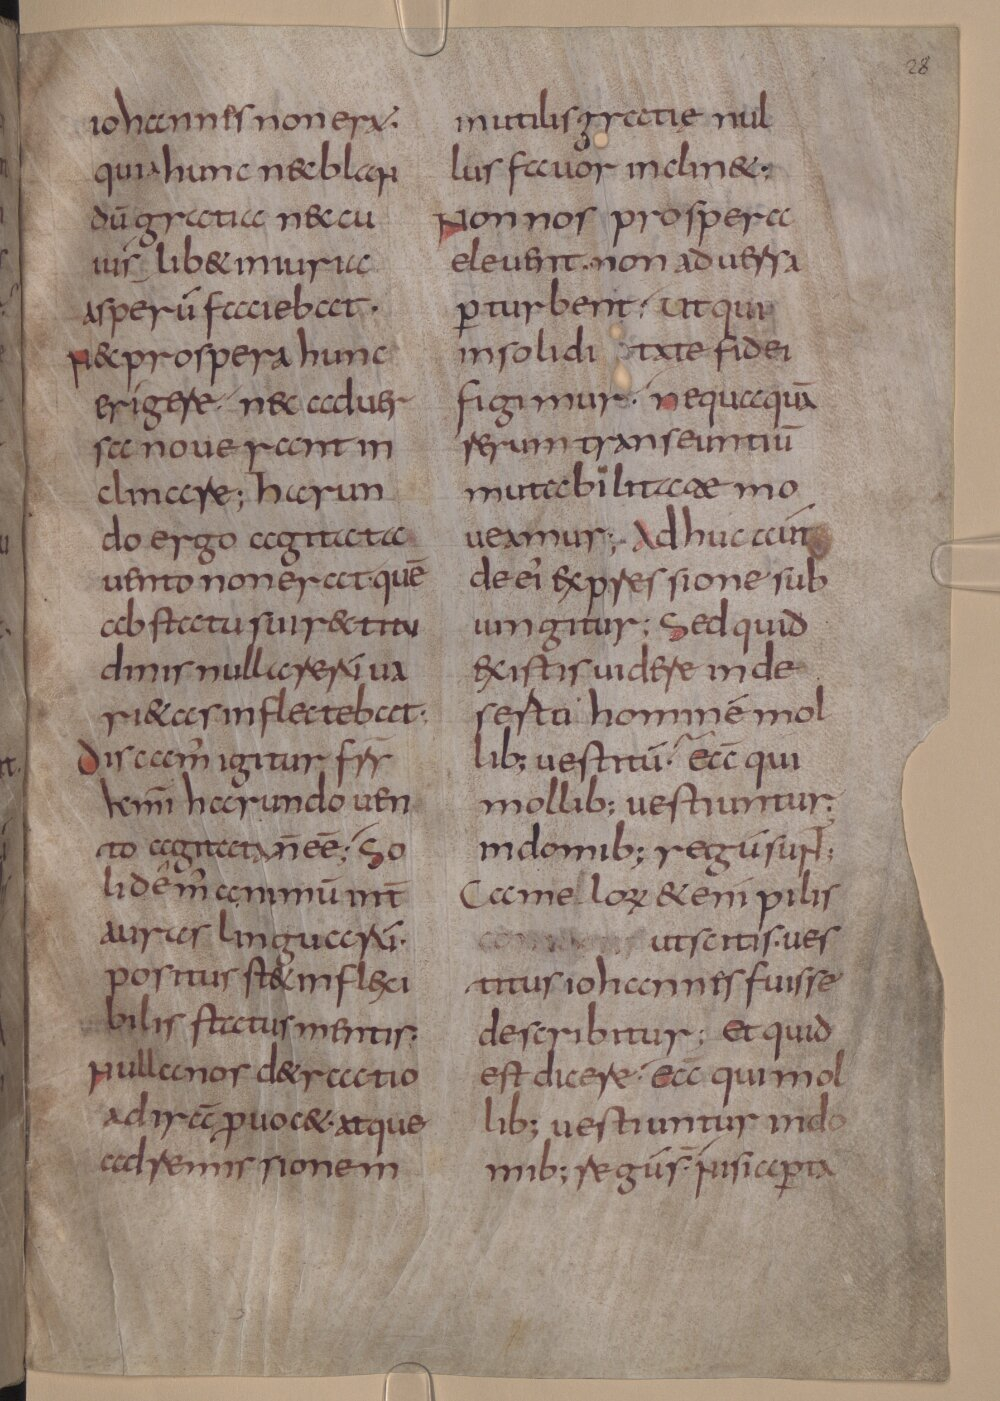 28
iohannis non erat.
quia hunc nec blan
dū gratia nec cu
iuslib& iniuria
asperū faciebat.
N& prospera hunc
erigere. nec aduer
sa nouerant in
clinare; harun
do ergo agitata
uento non erat. quē
ab statu sui rectitu
dinis nulla rerū ua
ri&as inflectebat.
Discam igitur frs
kmi harundo uen
to agitata n̄ eē; So
lidem animū int̄
auras linguarū.
positus st& inflexi
bilis status mentis.
Nulla nos d&ractio
ad irā ꝓuoc&. atque
ad remissionem
inutilis gratiæ nul
lus fauor inclin&;
Non nos prospera
eleuent. non aduersa
ꝑturbent; Ut qui
in soliditate fidei
figimur. nequaquā
rerum transeuntiū
mutabilitate mo
ueamur; Adhuc aūt
de ei expressione sub
iungitur; Sed quid
existis uidere in de
serto hominē mol
lib; uestitū. ecce qui
mollib; uestiuntur;
in domib; regū sunt;
Camelorꝝ & eni pilis
ut scitis. ues
titus iohannis fuisse
describitur; Et quid
est dicere. ecce qui mol
lib; uestiuntur in do
mib; regū s̄. nisi aꝑta